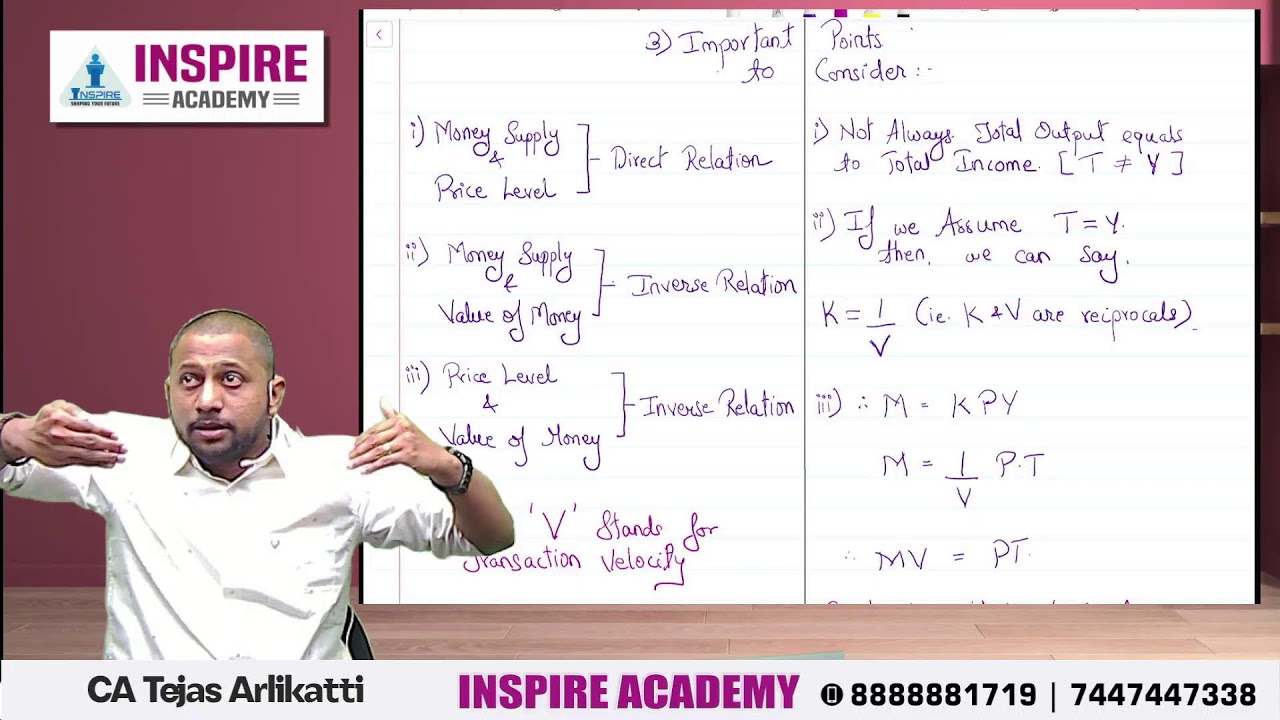 INSPIRE
ACADEMY
INSPIRE
SHAPING YOUR FUTURE
i) Money Supply
&
Price Level
Direct Relation
ii) Money Supply
&
Value of Money
Inverse Relation
iii) Price Level
&
Value of Money
Inverse Relation
'V' Stands for
Transaction Velocity
3) Important Points
to Consider :-
i) Not Always Total Output equals
to Total Income. [T ≠ Y]
ii) If we Assume T = Y.
then, we can say,
K = 1/V (ie. K & V are reciprocals).
iii) ∴ M = K P Y
M = 1/V P.T
∴ MV = PT.
CA Tejas Arlikatti
INSPIRE ACADEMY
8888881719 | 7447447338